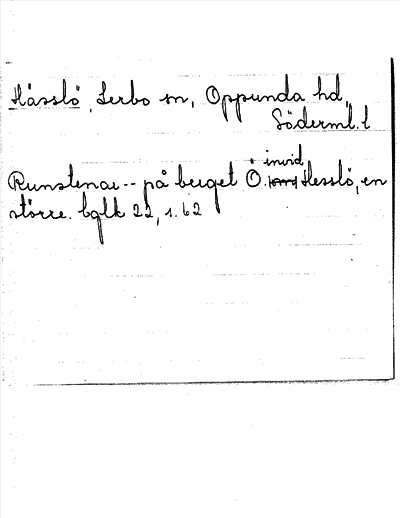 Hässlö, Lerbo sn, Oppunda hd,
Söderml. l
Runstenar -- på berget Ö. invid Hesslö, en
större. bglk 22, s. 62